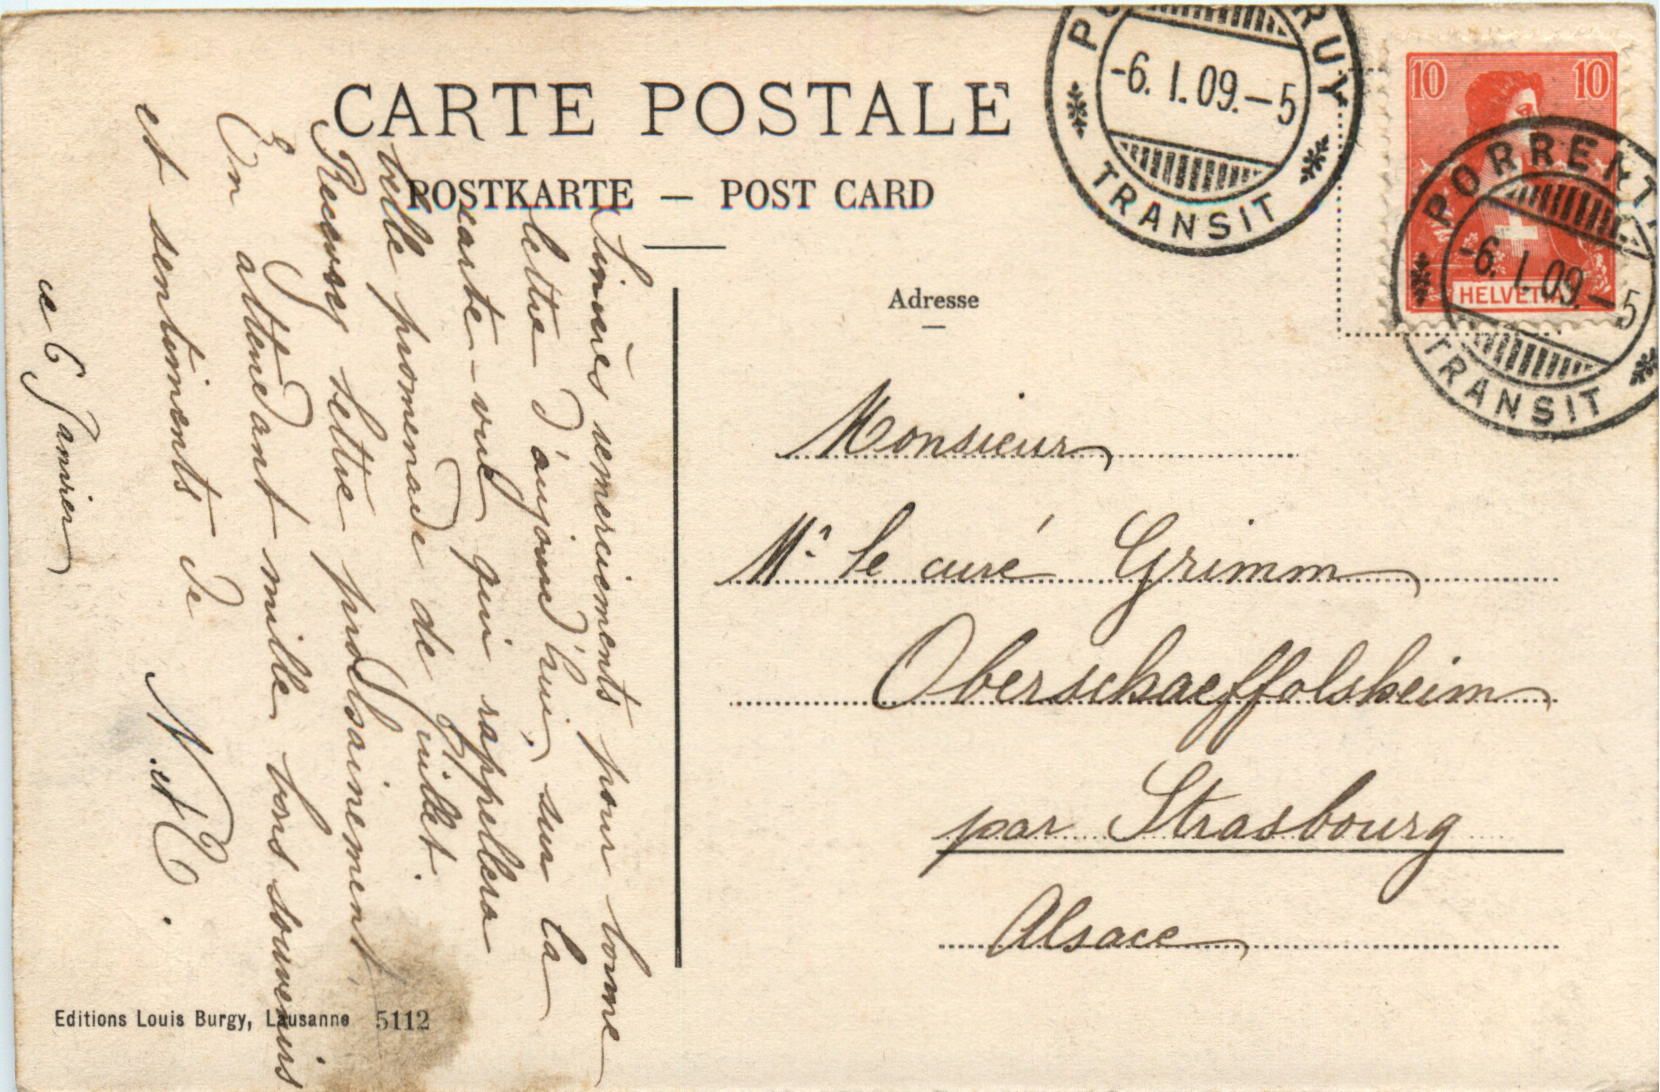 CARTE POSTALE
POSTKARTE — POST CARD
Adresse
RUY
-6. I. 09. - 5
TRANSIT
10 10
HELVETIA
PORRENT
-6. I. 09. - 5
TRANSIT
Monsieur
Mr le curé Grimm
Oberschaeffolsheim
par Strasbourg
Alsace
Sincères remerciements pour bonne
lettre d'aujourd'hui, sur la
carte-vue qui rappellera
belle promenade de Juillet.
Recevrez lettre prochainement,
En attendant mille bons souvenirs
et sentiments de
N. et E.
ce 6 Janvier
Editions Louis Burgy, Lausanne 5112